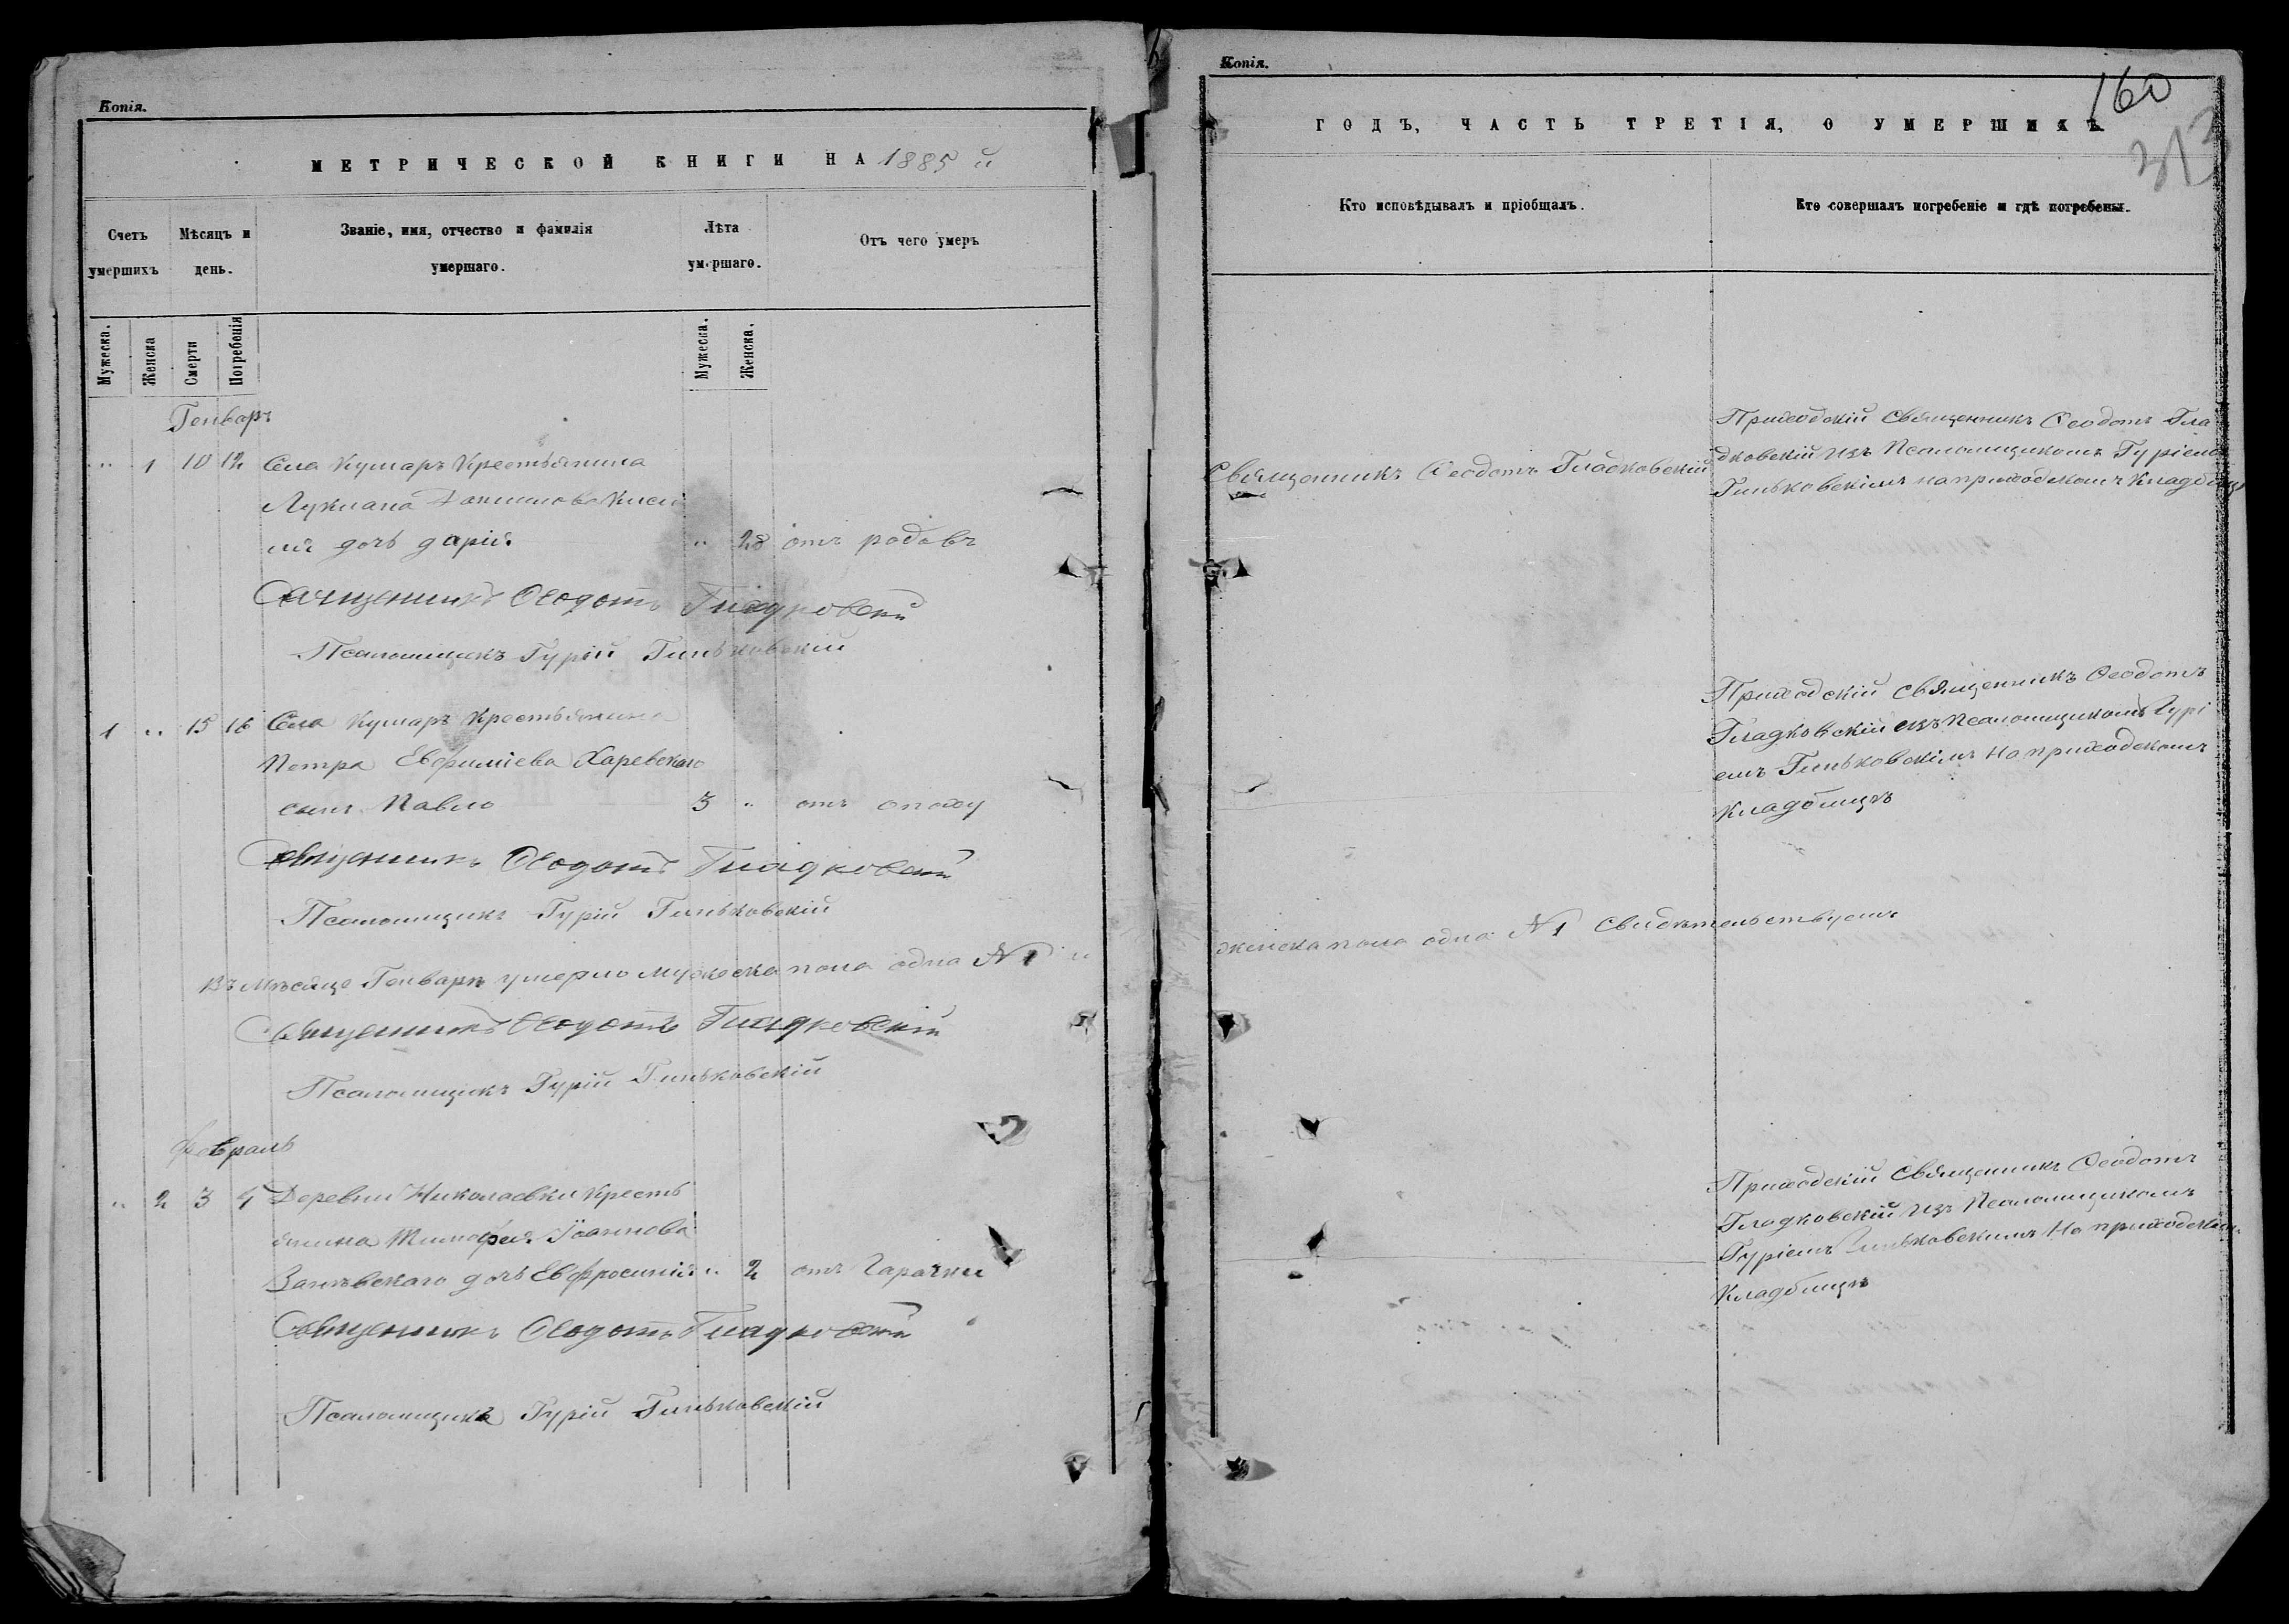 Копія.
МЕТРИЧЕСКОЙ КНИГИ НА 1885 й
Счетъ умершихъ
Мѣсяцъ и день.
Званіе, имя, отчество и фамилія умершаго.
Лѣта умершаго.
Отъ чего умеръ
Мужеска.
Женска
Смерти
Погребенія
Мужеска.
Женска.
Генварь
" 1 10 12 Села Кумаръ Крестьянина
Лукиана
дочь Дарія " 28 отъ родовъ
Священникъ Ѳеодотъ Гладковскій
Псаломщикъ Гурій Гиньковскій
1 " 15 16 Села Кумаръ Крестьянина
Петра Евфиміева Харевскаго
сынъ Павло 3 " отъ
Священникъ Ѳеодотъ Гладковскій
Псаломщикъ Гурій Гиньковскій
Въ Мѣсяце Генварѣ умерло мужеска пола одна № 1 и
Священникъ Ѳеодотъ Гладковскій
Псаломщикъ Гурій Гиньковскій
Февраль
" 2 3 4 Деревни Николаевки Кресть
янина Тимофея Іоаннова
дочь Евфросинія " 2 отъ Гарачки
Священникъ Ѳеодотъ Гладковскій
Псаломщикъ Гурій Гиньковскій
Копія.
160
313
ГОДЪ, ЧАСТЬ ТРЕТІЯ, О УМЕРШИХЪ
Кто исповѣдывалъ и пріобщалъ.
Кто совершалъ погребеніе и гдѣ погребены.
Священникъ Ѳеодотъ Гладковскій
Приходскій Священникъ Ѳеодотъ Гла
дковскій изъ Псаломщикомъ Гуріемъ
Гиньковскімъ на приходскомъ Кладбище
Приходскій Священникъ Ѳеодотъ
Гладковскій изъ Псаломщикомъ Гурі
емъ Гиньковскімъ На приходскомъ
Кладбищѣ
женска пола одна № 1 Свидѣтельствуемъ
Приходскій Священникъ Ѳеодотъ
Гладковскій изъ Псаломщикомъ
Гуріемъ Гиньковскимъ На приходском
Кладбищѣ